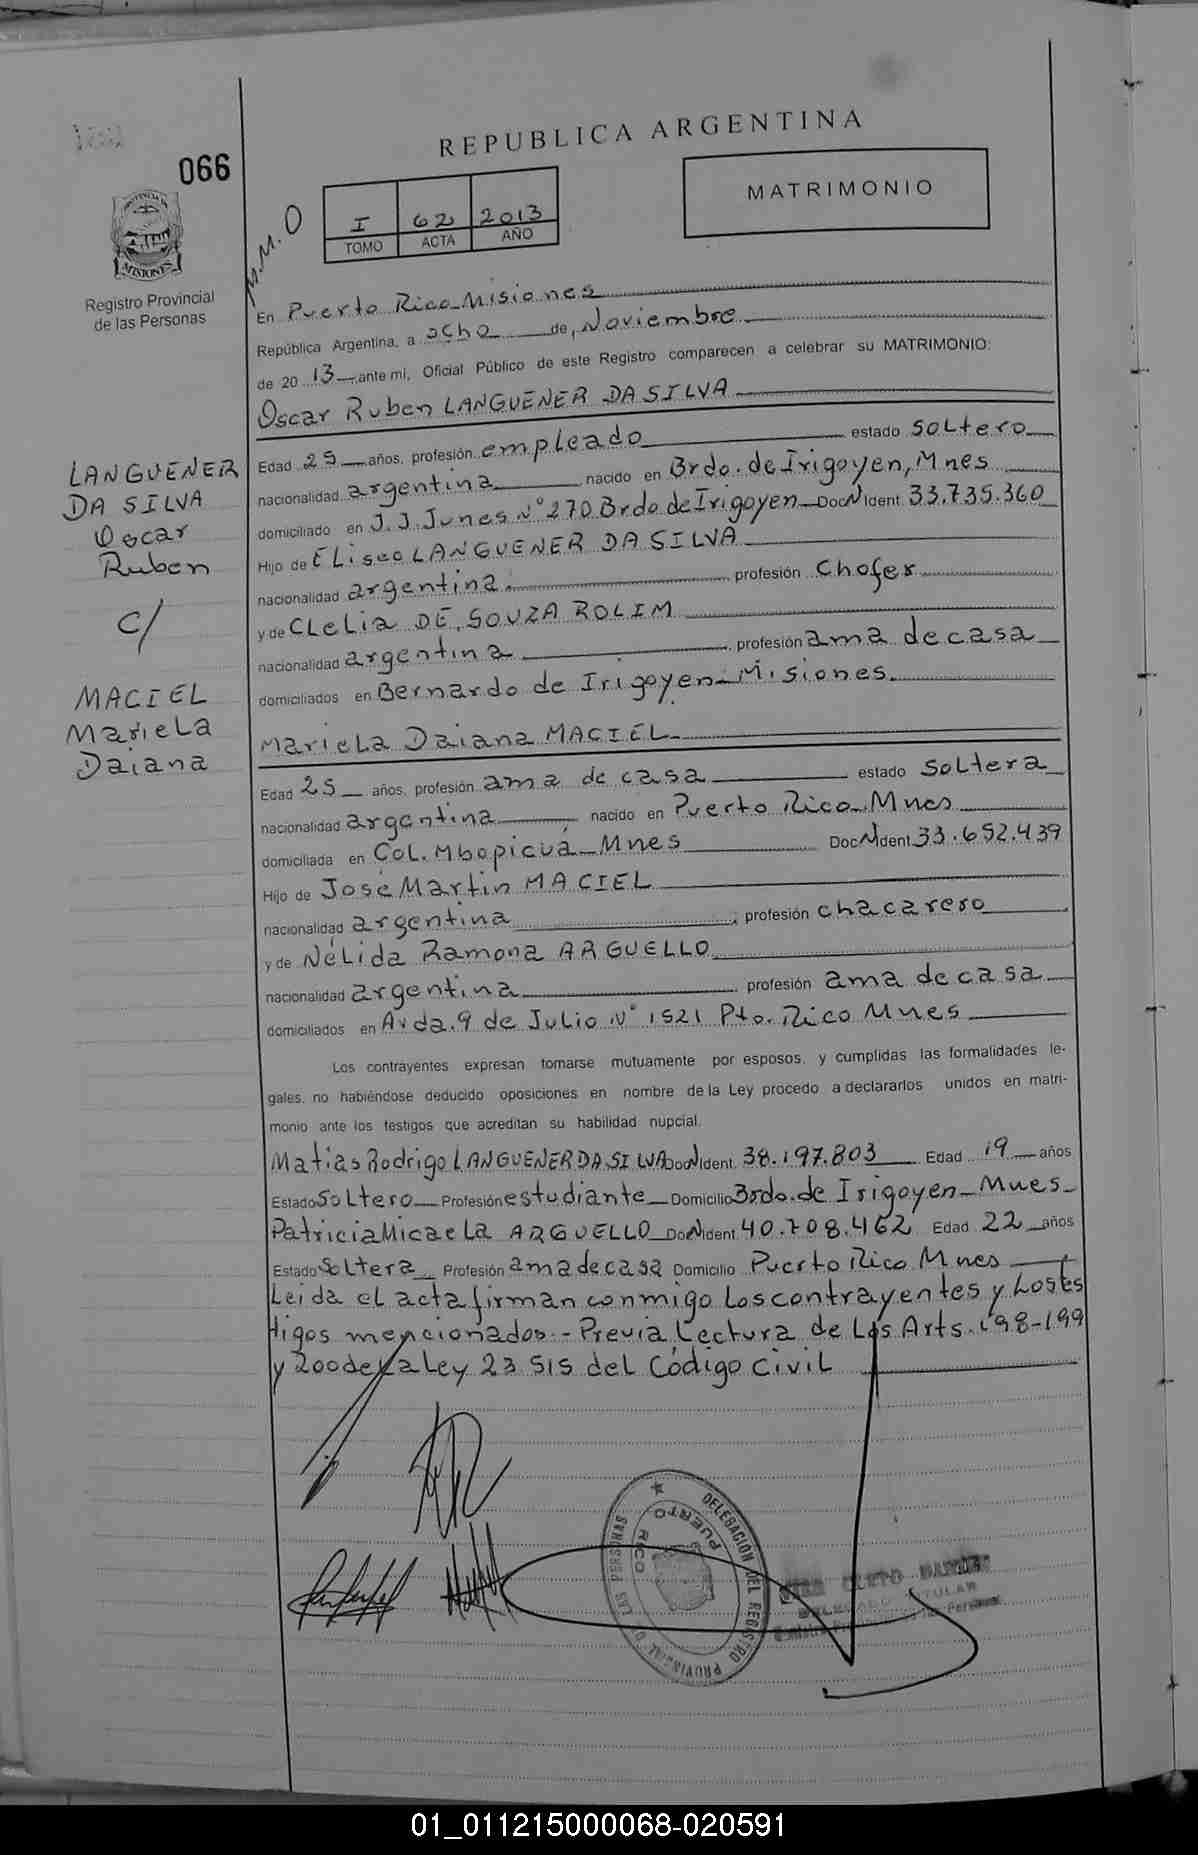 066
REPUBLICA ARGENTINA
MATRIMONIO
I 62 2013
TOMO ACTA AÑO
M.M.O
MISIONES
Registro Provincial
de las Personas
En Puerto Rico - Misiones
República Argentina, a ocho de, Noviembre
de 20 13 ante mi, Oficial Público de este Registro comparecen a celebrar su MATRIMONIO:
Oscar Ruben LANGUENER DA SILVA
Edad 25 años, profesión empleado estado soltero
nacionalidad argentina nacido en Brdo. de Irigoyen, Mnes
domiciliado en J.J. Junes N° 270 Brdo de Irigoyen - Doc N Ident 33.735.360
Hijo de Eliseo LANGUENER DA SILVA
nacionalidad argentina profesión Chofer
y de CLelia DE SOUZA ROLIM
nacionalidad argentina profesión ama de casa
domiciliados en Bernardo de Irigoyen - Misiones
LANGUENER
DA SILVA
Oscar
Ruben
c/
MACIEL
Mariela
Daiana
Mariela Daiana MACIEL
Edad 25 años, profesión ama de casa estado soltera
nacionalidad argentina nacido en Puerto Rico - Mnes
domiciliada en Col. Mbopicuá - Mnes Doc N Ident 33.652.439
Hijo de José Martin MACIEL
nacionalidad argentina profesión chacarero
y de Nélida Ramona ARGUELLO
nacionalidad argentina profesión ama de casa
domiciliados en Avda. 9 de Julio N° 1521 Pto. Rico Mnes
Los contrayentes expresan tomarse mutuamente por esposos, y cumplidas las formalidades le-
gales, no habiéndose deducido oposiciones en nombre de la Ley procedo a declararlos unidos en matri-
monio ante los testigos que acreditan su habilidad nupcial.
Matias Rodrigo LANGUENER DA SILVA Doc N Ident 38.197.803 Edad 19 años
Estado soltero Profesión estudiante Domicilio Brdo. de Irigoyen - Mnes
Patricia Micaela ARGUELLO Doc N Ident 40.708.462 Edad 22 años
Estado soltera Profesión ama de casa Domicilio Puerto Rico Mnes
Leida el acta firman conmigo los contrayentes y los tes
tigos mencionados.- Previa Lectura de Los Arts. 198-199
y 200 de la Ley 23.515 del Código Civil
DELEGACION DEL REGISTRO PROVINCIAL DE LAS PERSONAS
PUERTO RICO
DELEGADO TITULAR
01_011215000068-020591